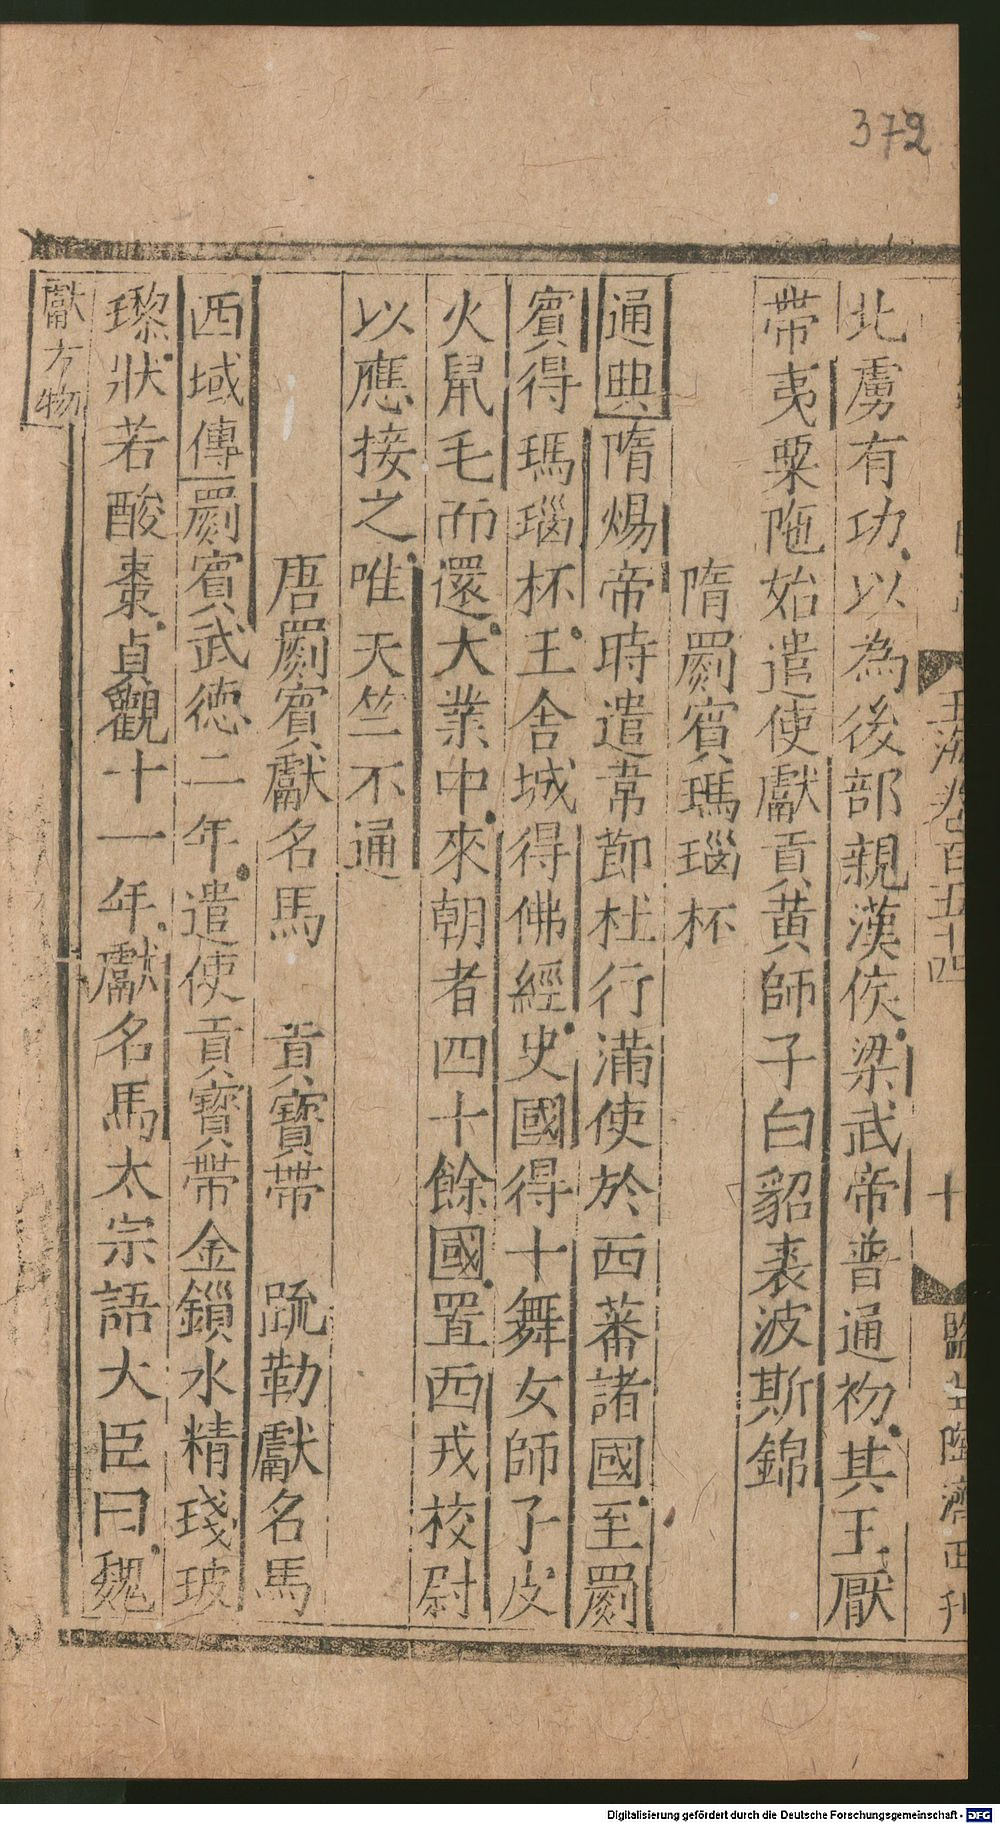 372
北虜有功以為後部親漢侯梁武帝普通初其王厭
帶夷粟陁始遣使獻貢黃師子白貂裘波斯錦
隋罽賓瑪瑙杯
通典隋煬帝時遣韋節杜行滿使於西蕃諸國至罽
賓得瑪瑙杯王舍城得佛經史國得十舞女師子皮
火鼠毛而還大業中來朝者四十餘國置西戎校尉
以應接之唯天竺不通
唐罽賓獻名馬 貢寶帶 䟽勒獻名馬
西域傳罽賓武德二年遣使貢寶帶金鎻水精琖玻
瓈狀若酸棗貞觀十一年獻名馬太宗語大臣曰魏
獻方物
玉海卷百五十四
十
監生陸濟正刊
Digitalisierung gefördert durch die Deutsche Forschungsgemeinschaft - DFG